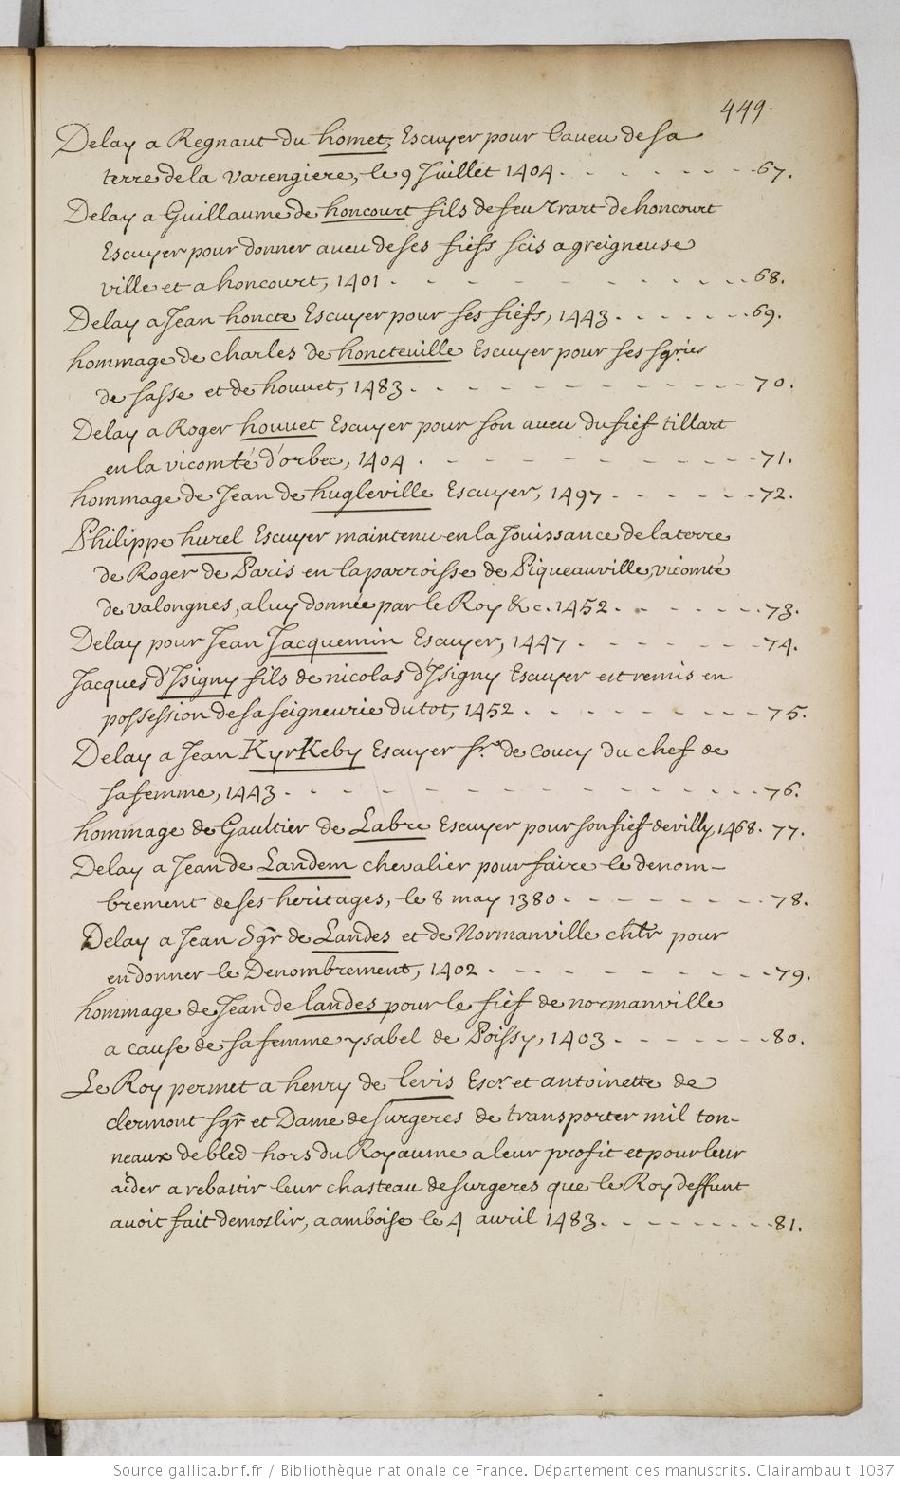 449.
Delay a Regnaut du homet, Escuyer pour l'aveu de sa
terre de la varengiere, le 9 Juillet 1404. - - - - - - - 67.
Delay a Guillaume de honcourt fils de feu Trart de honcourt
Escuyer pour donner aveu de ses fiefs scis a greigneuse
ville et a honcourt, 1401 - - - - - - - - - - 68.
Delay a Jean honcte Escuyer pour ses fiefs, 1443 - - - - - - 69.
hommage de charles de honcteville Escuyer pour ses sgries
de sasse et de houuet, 1483. - - - - - - - - - 70.
Delay a Roger houuet Escuyer pour son aveu du fief tillart
en la vicomté d'orbec, 1404 - - - - - - - - - 71.
hommage de Jean de hugleville Escuyer, 1497 - - - - - - 72.
Philippe hurel Escuyer maintenu en la Jouissance de la terre
de Roger de Paris en la parroisse de Piqueauville, vicomté
de valongnes, a luy donnée par le Roy &c. 1452. - - - - - 73.
Delay pour Jean Jacquemin Escuyer, 1447 - - - - - - - 74.
Jacques d'Isigny fils de nicolas d'Isigny Escuyer est remis en
possession de sa seigneurie du tot, 1452 - - - - - - - 75.
Delay a Jean KyrKeby Escuyer sr. de coucy du chef de
sa femme, 1443 - - - - - - - - - - - - - 76.
hommage de Gaultier de Labre Escuyer pour son fief de villy, 1468. 77.
Delay a Jean de Landem chevalier pour faire le denom-
brement de ses heritages, le 8 may 1380 - - - - - - - 78.
Delay a Jean Sgr de Landes et de Normanville chlr pour
en donner le Denombrement, 1402 - - - - - - - - - 79.
hommage de Jean de landes pour le fief de normanville
a cause de sa femme ysabel de Poissy, 1403 - - - - - - 80.
Le Roy permet a henry de levis Escr. et antoinette de
clermont Sgr et Dame de surgeres de transporter mil ton-
neaux de bled hors du Royaume a leur profit et pour leur
aider a rebastir leur chasteau de surgeres que le Roy deffunt
auoit fait demoslir, a amboise le 4 avril 1483. - - - - - - 81.
Source gallica.bnf.fr / Bibliothèque nationale de France. Département des manuscrits. Clairambault 1037